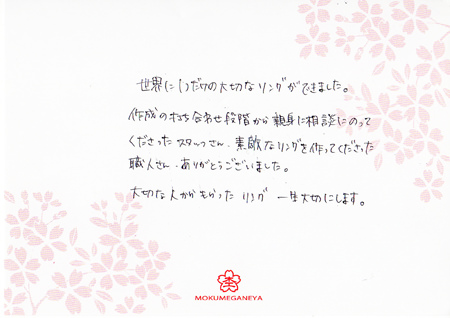 世界に1つだけの大切なリングができました。
作成の打ち合わせ段階から親身に相談にのって
くださったスタッフさん、素敵なリングを作ってくださった
職人さん、ありがとうございました。
大切な人からもらったリング 一生大切にします。
MOKUMEGANEYA